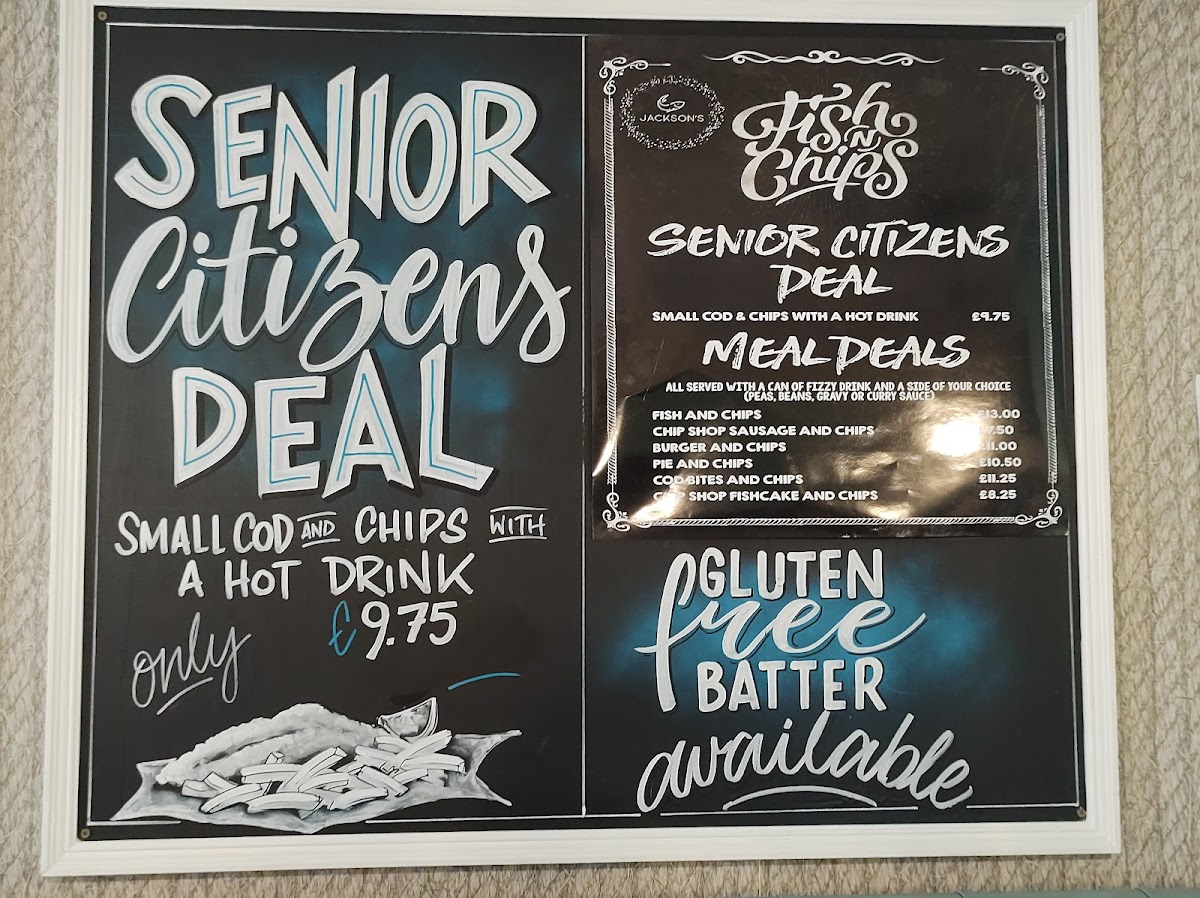 SENIOR
Citizens
DEAL
SMALL COD AND CHIPS WITH
A HOT DRINK
only £9.75
JACKSON'S
Fish
'N'
Chips
SENIOR CITIZENS
DEAL
SMALL COD & CHIPS WITH A HOT DRINK £9.75
MEAL DEALS
ALL SERVED WITH A CAN OF FIZZY DRINK AND A SIDE OF YOUR CHOICE
(PEAS, BEANS, GRAVY OR CURRY SAUCE)
FISH AND CHIPS £13.00
CHIP SHOP SAUSAGE AND CHIPS
BURGER AND CHIPS £11.00
PIE AND CHIPS £10.50
COD BITES AND CHIPS £11.25
CHIP SHOP FISHCAKE AND CHIPS £8.25
GLUTEN
free
BATTER
available